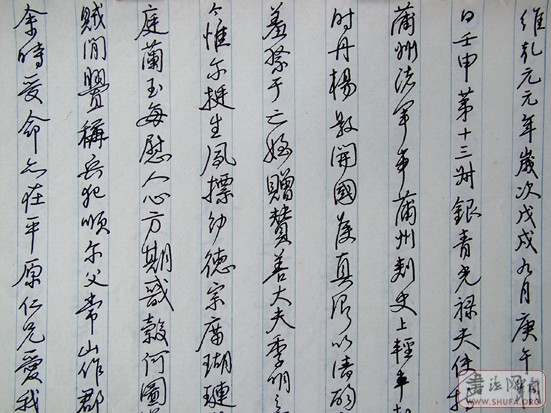 維乾元元年歲次戊戌九月庚午
日壬申第十三叔銀青光祿夫使持
蒲州諸軍事蒲州刺史上輕車都
尉丹楊縣開國侯真卿以清酌
羞祭于亡姪贈贊善大夫季明之
今惟爾挺生夙標幼德宗廟瑚璉
庭蘭玉每慰人心方期戩穀何圖
賊閒舋稱兵犯順爾父常山作郡
余時受命亦在平原仁兄愛我
書法网
WWW.SHUFA.ORG